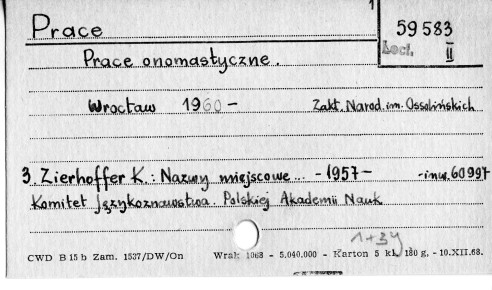 1
Prace
59 583
II
Prace onomastyczne.
Wrocław 1960 - Zakł. Narod. im. Ossolińskich
3. Zierhoffer K.: Nazwy miejscowe... -1957- -inw. 60997
Komitet Językoznawstwa. Polskiej Akademii Nauk
1+34
CWD B 15 b Zam. 1537/DW/On Wrak 1068 - 5.040.000 - Karton 5 kl. 180 g. - 10.XII.68.